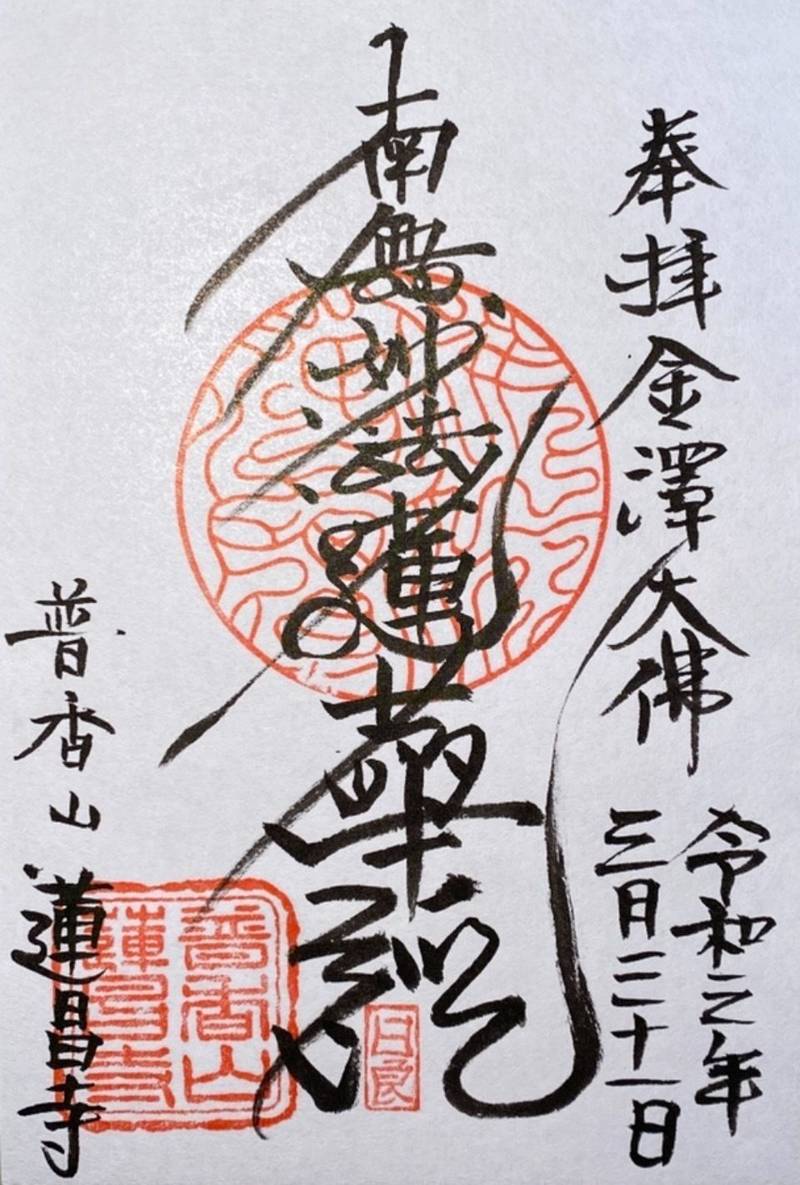 奉拝 金澤大佛
令和二年
三月二十一日
南無妙法蓮華経
普香山 蓮昌寺
普香山
蓮昌寺